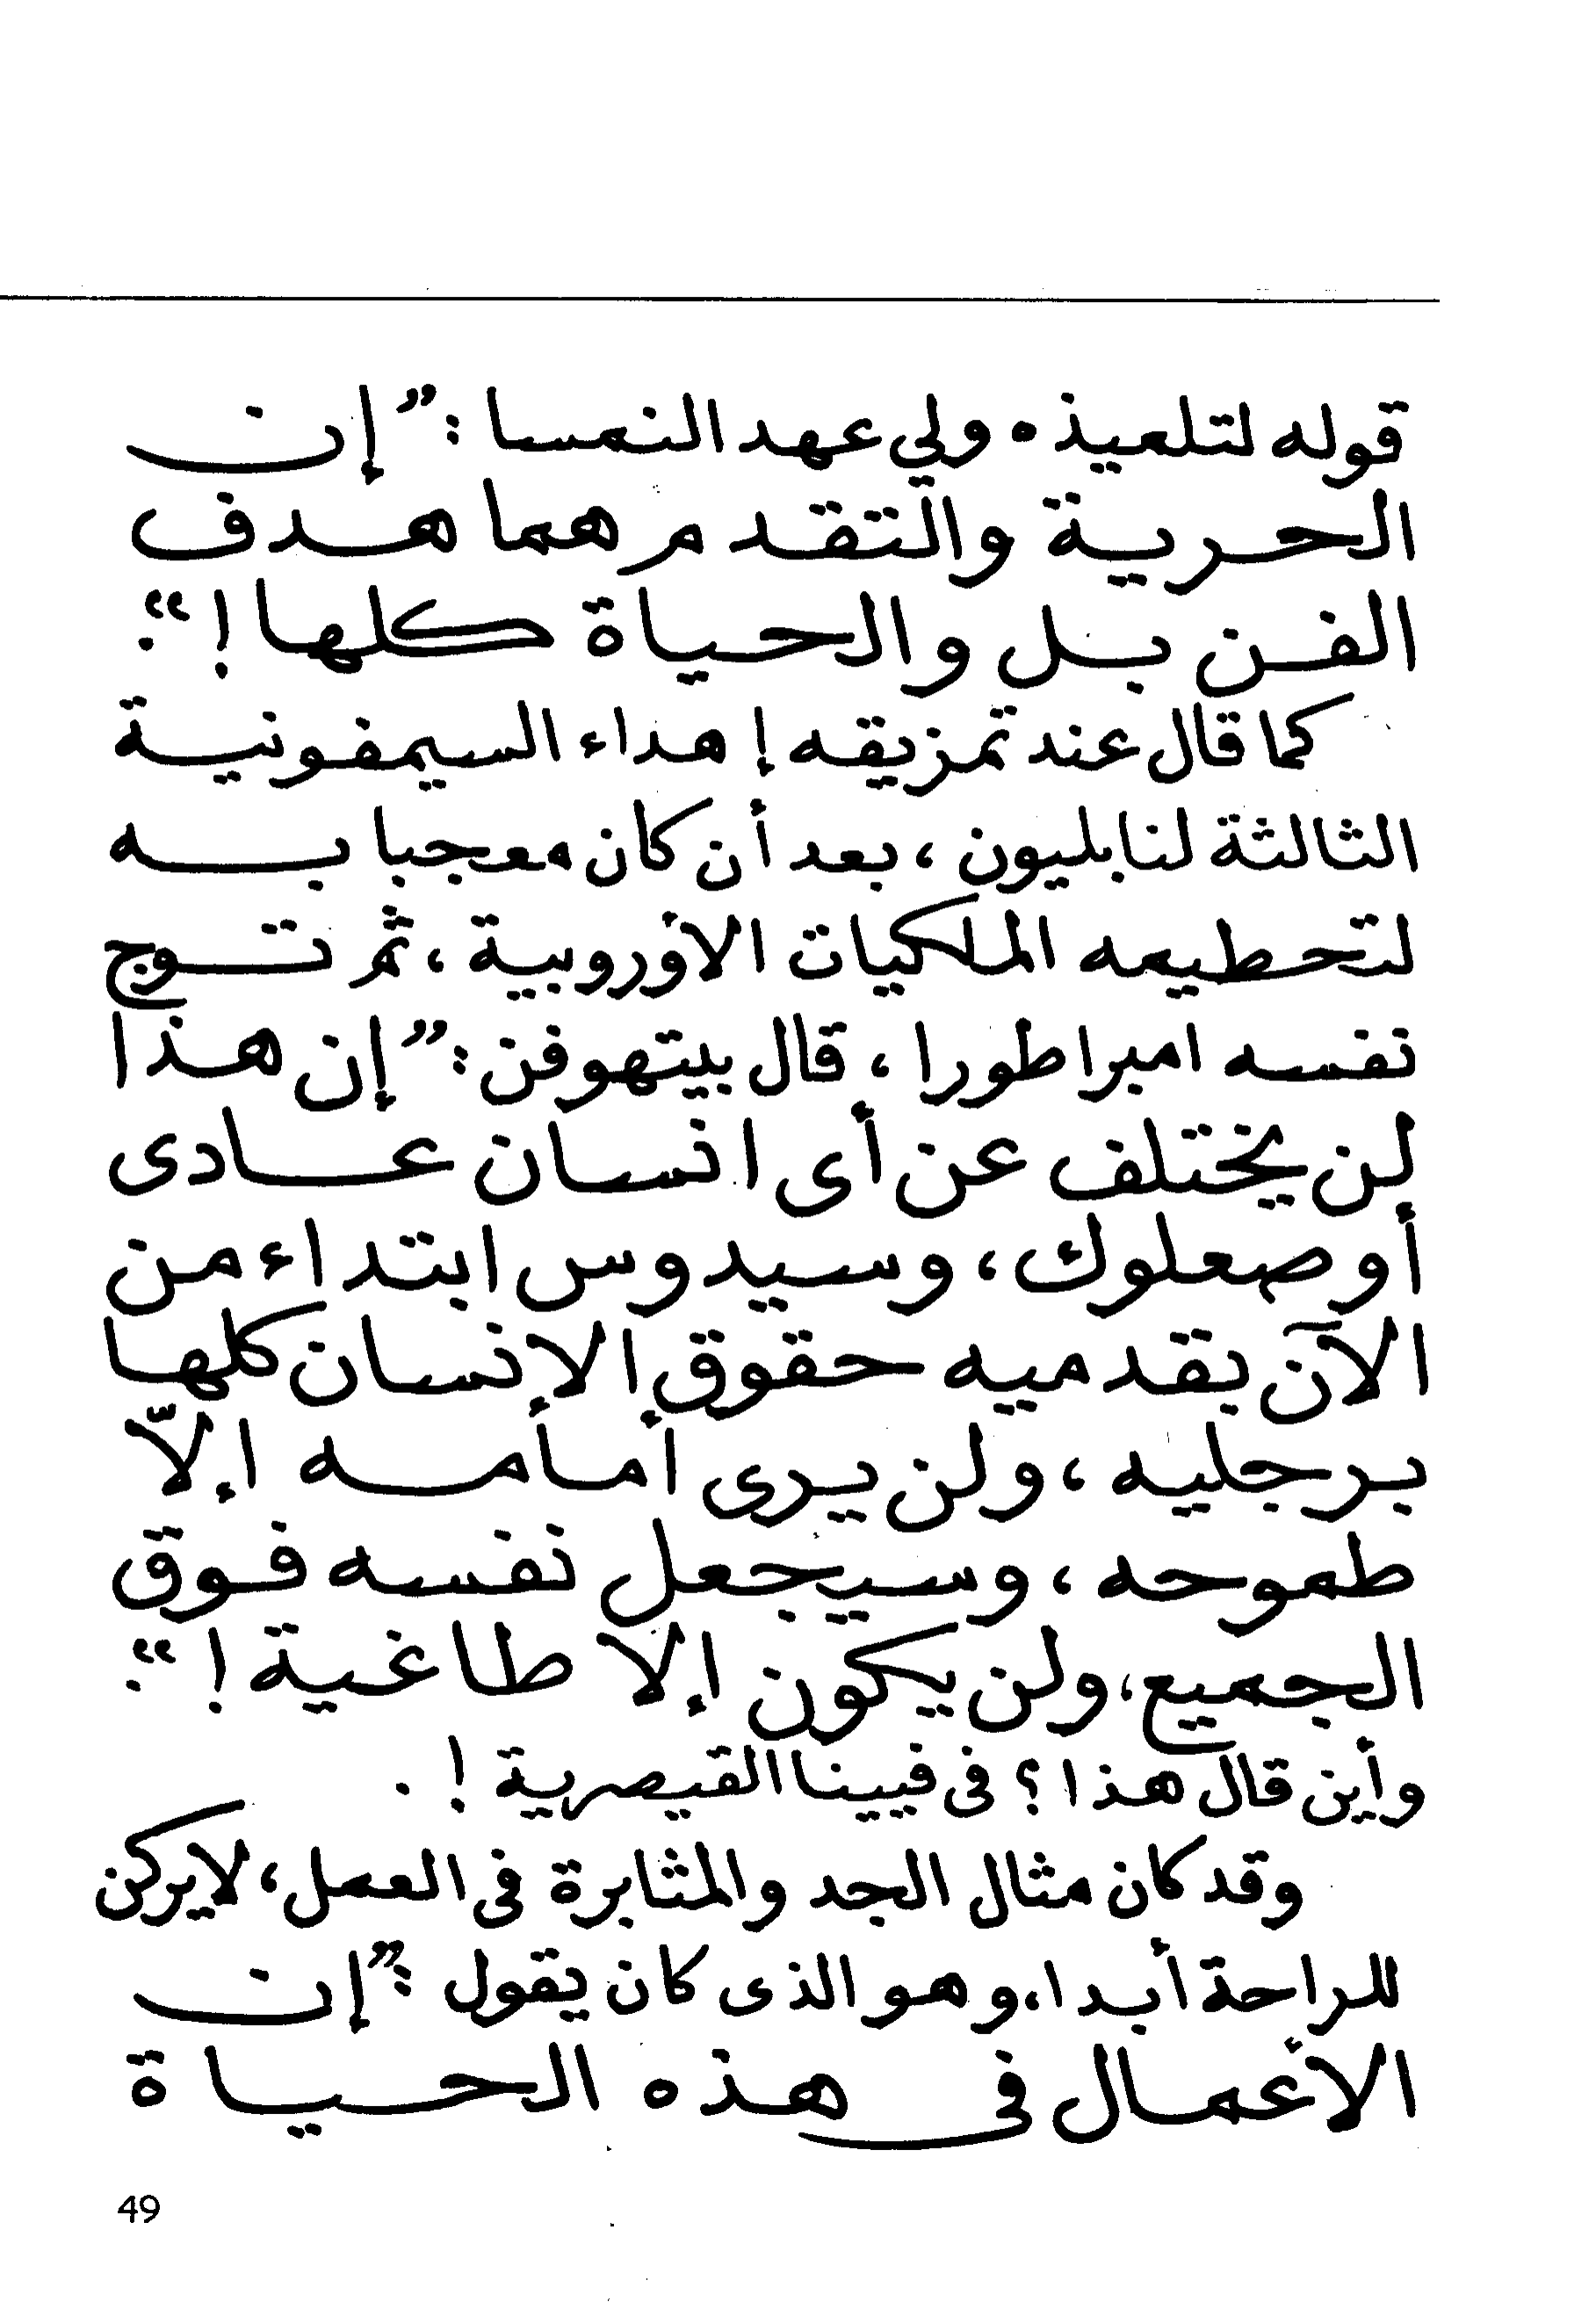 قوله لتلميذه ولي عهد النمسا : ”إن
الحرية والتقدم هما هدف
الفن بل والحياة كلها ! “.
كما قال عند تمزيقه إهداء السيمفونية
الثالثة لنابليون ، بعد أن كان معجبا به
لتحطيمه الملكيات الأوروبية ، ثم توج
نفسه امبراطورا ، قال بيتهوفن : ”إن هذا
لن يختلف عن أى انسان عادى
أو صعلوك ، وسيدوس ابتداء من
الآن بقدميه حقوق الإنسان كلها
برجليه ، ولن يرى أمأمه إلاّ
طموحه ، وسيجعل نفسه فوق
الجميع ، ولن يكون إلا طاغية ! “.
وأين قال هذا ؟ فى فيينا القيصرية ! .
وقد كان مثال الجد والمثابرة فى العمل ، لا يركن
للراحة أبدا ، وهو الذى كان يقول : ”إن
الأعمال فى هذه الحياة
49